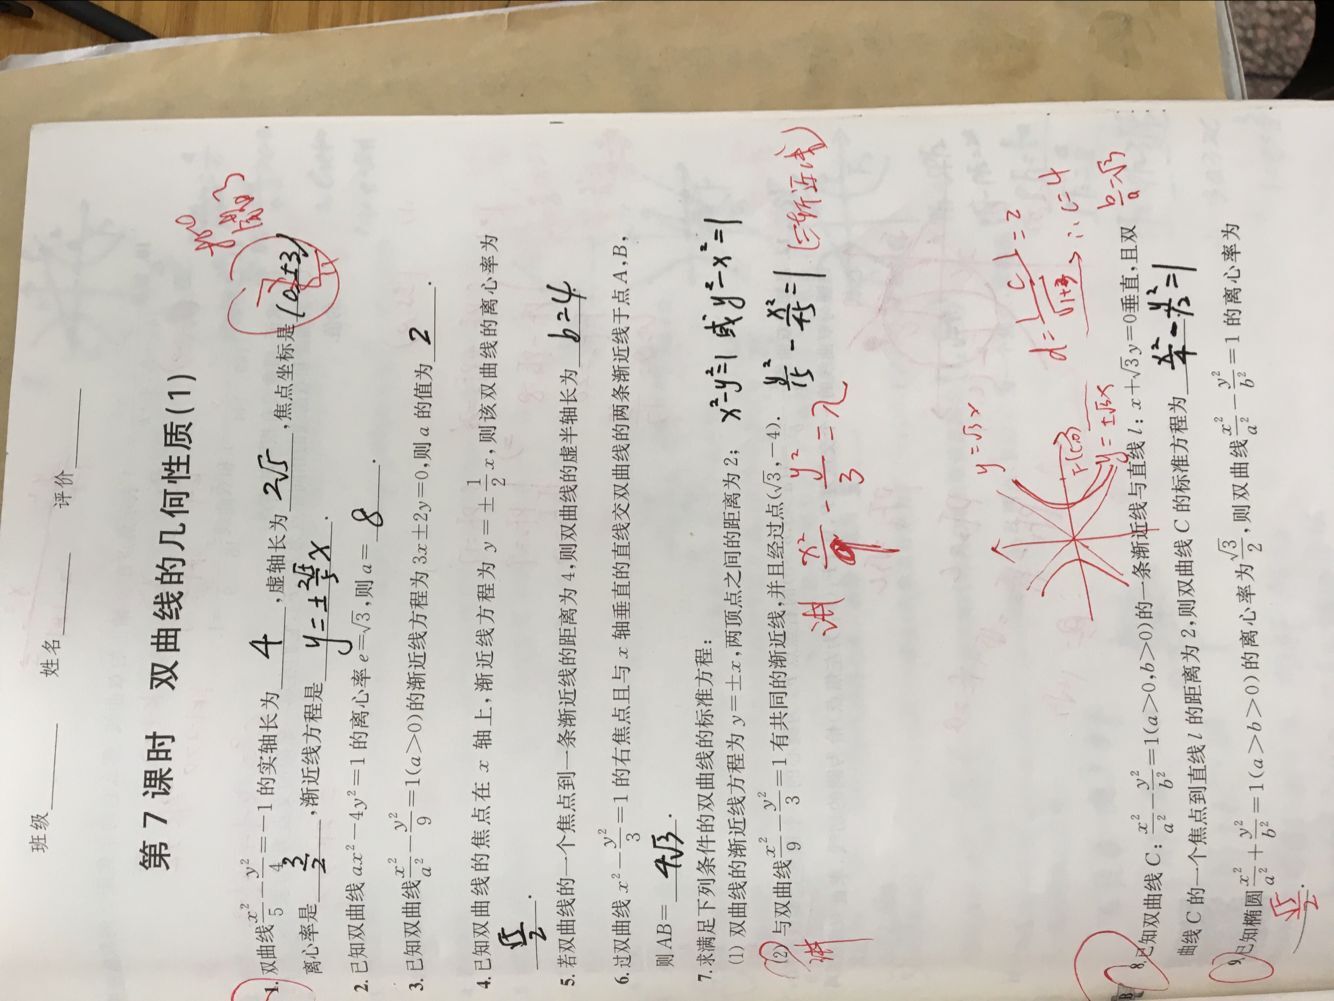 班级________ 姓名________ 评价________
第7课时 双曲线的几何性质(1)
1. 双曲线x²/5-y²/4=-1的实轴长为 4 ,虚轴长为 2√5 ,焦点坐标是 (0,±3)
离心率是 3/2 ,渐近线方程是 y=±2√5/5x .
2. 已知双曲线ax²-4y²=1的离心率e=√3,则a= 8 .
3. 已知双曲线x²/a²-y²/9=1(a>0)的渐近线方程为3x±2y=0,则a的值为 2 .
4. 已知双曲线的焦点在x轴上,渐近线方程为y=±1/2x,则该双曲线的离心率为
√5/2 .
5. 若双曲线的一个焦点到一条渐近线的距离为4,则双曲线的虚半轴长为 b=4 .
6. 过双曲线x²-y²/3=1的右焦点且与x轴垂直的直线交双曲线的两条渐近线于点A,B,
则AB= 4√3 .
7. 求满足下列条件的双曲线的标准方程:
(1) 双曲线的渐近线方程为y=±x,两顶点之间的距离为2; x²-y²=1 或 y²-x²=1
(2) 与双曲线x²/9-y²/3=1有共同的渐近线,并且经过点(√3,-4). y²/15-x²/45=1
讲
x²/9-y²/3=λ
y=√3x
y=±√3x
F(c,0)
d=|c|/√1+3=2
∴c=4
b/a=√3
B 8. 已知双曲线C:x²/a²-y²/b²=1(a>0,b>0)的一条渐近线与直线l:x+√3y=0垂直,且双
曲线C的一个焦点到直线l的距离为2,则双曲线C的标准方程为 x²/4-y²/12=1
9. 已知椭圆x²/a²+y²/b²=1(a>b>0)的离心率为√3/2,则双曲线x²/a²-y²/b²=1的离心率为
√5/2 .